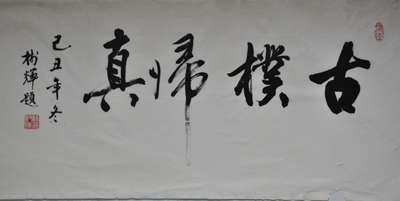 古樸歸真
己丑年冬
樹輝題